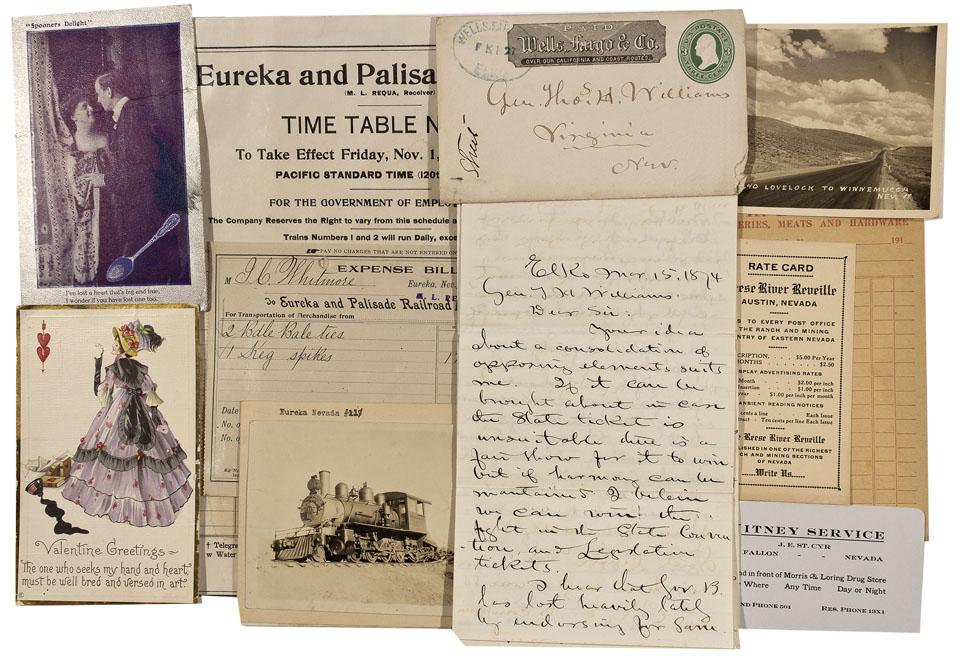 "Spooners Delight"
I've lost a heart that's big and true,
I wonder if you have lost one too.
Valentine Greetings ~
The one who seeks my hand and heart,
must be well bred and versed in art.
Eureka and Palisa
(M. L. REQUA, Receiver)
TIME TABLE N
To Take Effect Friday, Nov. 1,
PACIFIC STANDARD TIME (120t
FOR THE GOVERNMENT OF EMPLO
The Company Reserves the Right to vary from this schedule a
Trains Numbers 1 and 2 will run Daily, exce
PAY NO CHARGES THAT ARE NOT ENTERED ON
EXPENSE BILL
M J. C. Whitmore
Eureka, Nev.
To Eureka and Palisade Railroad
For Transportation of Merchandise from
2 Bdle Bale ties
1 Keg spikes
Date
No. o
No. o
† Telegra
w Water
Eureka Nevada #117
WELLS, FAR
ELKO
PAID
Wells, Fargo & Co.
OVER OUR CALIFORNIA AND COAST ROUTES
U.S. POSTAGE
THREE CENTS
Gen. Thos. H. Williams
Virginia
Nev.
Elko Mar. 15, 1874
Gen T H Williams
Dear Sir:
Your idea
about a consolidation of
opposing elements suits
me. If it can be
brought about in case
the State ticket is
unsuitable there is a
fair show for it to win
but if harmony can be
maintained I believe
we can win the
fight in the State Conven
tion, and Legislative
tickets.
I hear that Gov. B.
has lost heavily lately
by endorsing for Sam.
NO LOVELOCK TO WINNEMUCCA
NEV. 11
ERIES, MEATS AND HARDWARE
191
RATE CARD
eese River Reveille
AUSTIN, NEVADA
S TO EVERY POST OFFICE
THE RANCH AND MINING
NTRY OF EASTERN NEVADA
CRIPTION, $5.00 Per Year
MONTHS $2.50
SPLAY ADVERTISING RATES
Month $2.00 per inch
Insertion $1.00 per inch
year $1.00 per inch per month
ANSIENT READING NOTICES
cents a line Each Issue
st Ten cents per line Each Issue
e Reese River Reveille
BLISHED IN ONE OF THE RICHEST
CH AND MINING SECTIONS
OF NEVADA
Write Us
ITNEY SERVICE
J. E. ST. CYR
FALLON - - NEVADA
nd in front of Morris & Loring Drug Store
Where Any Time Day or Night
ND PHONE 501 RES. PHONE 13X1